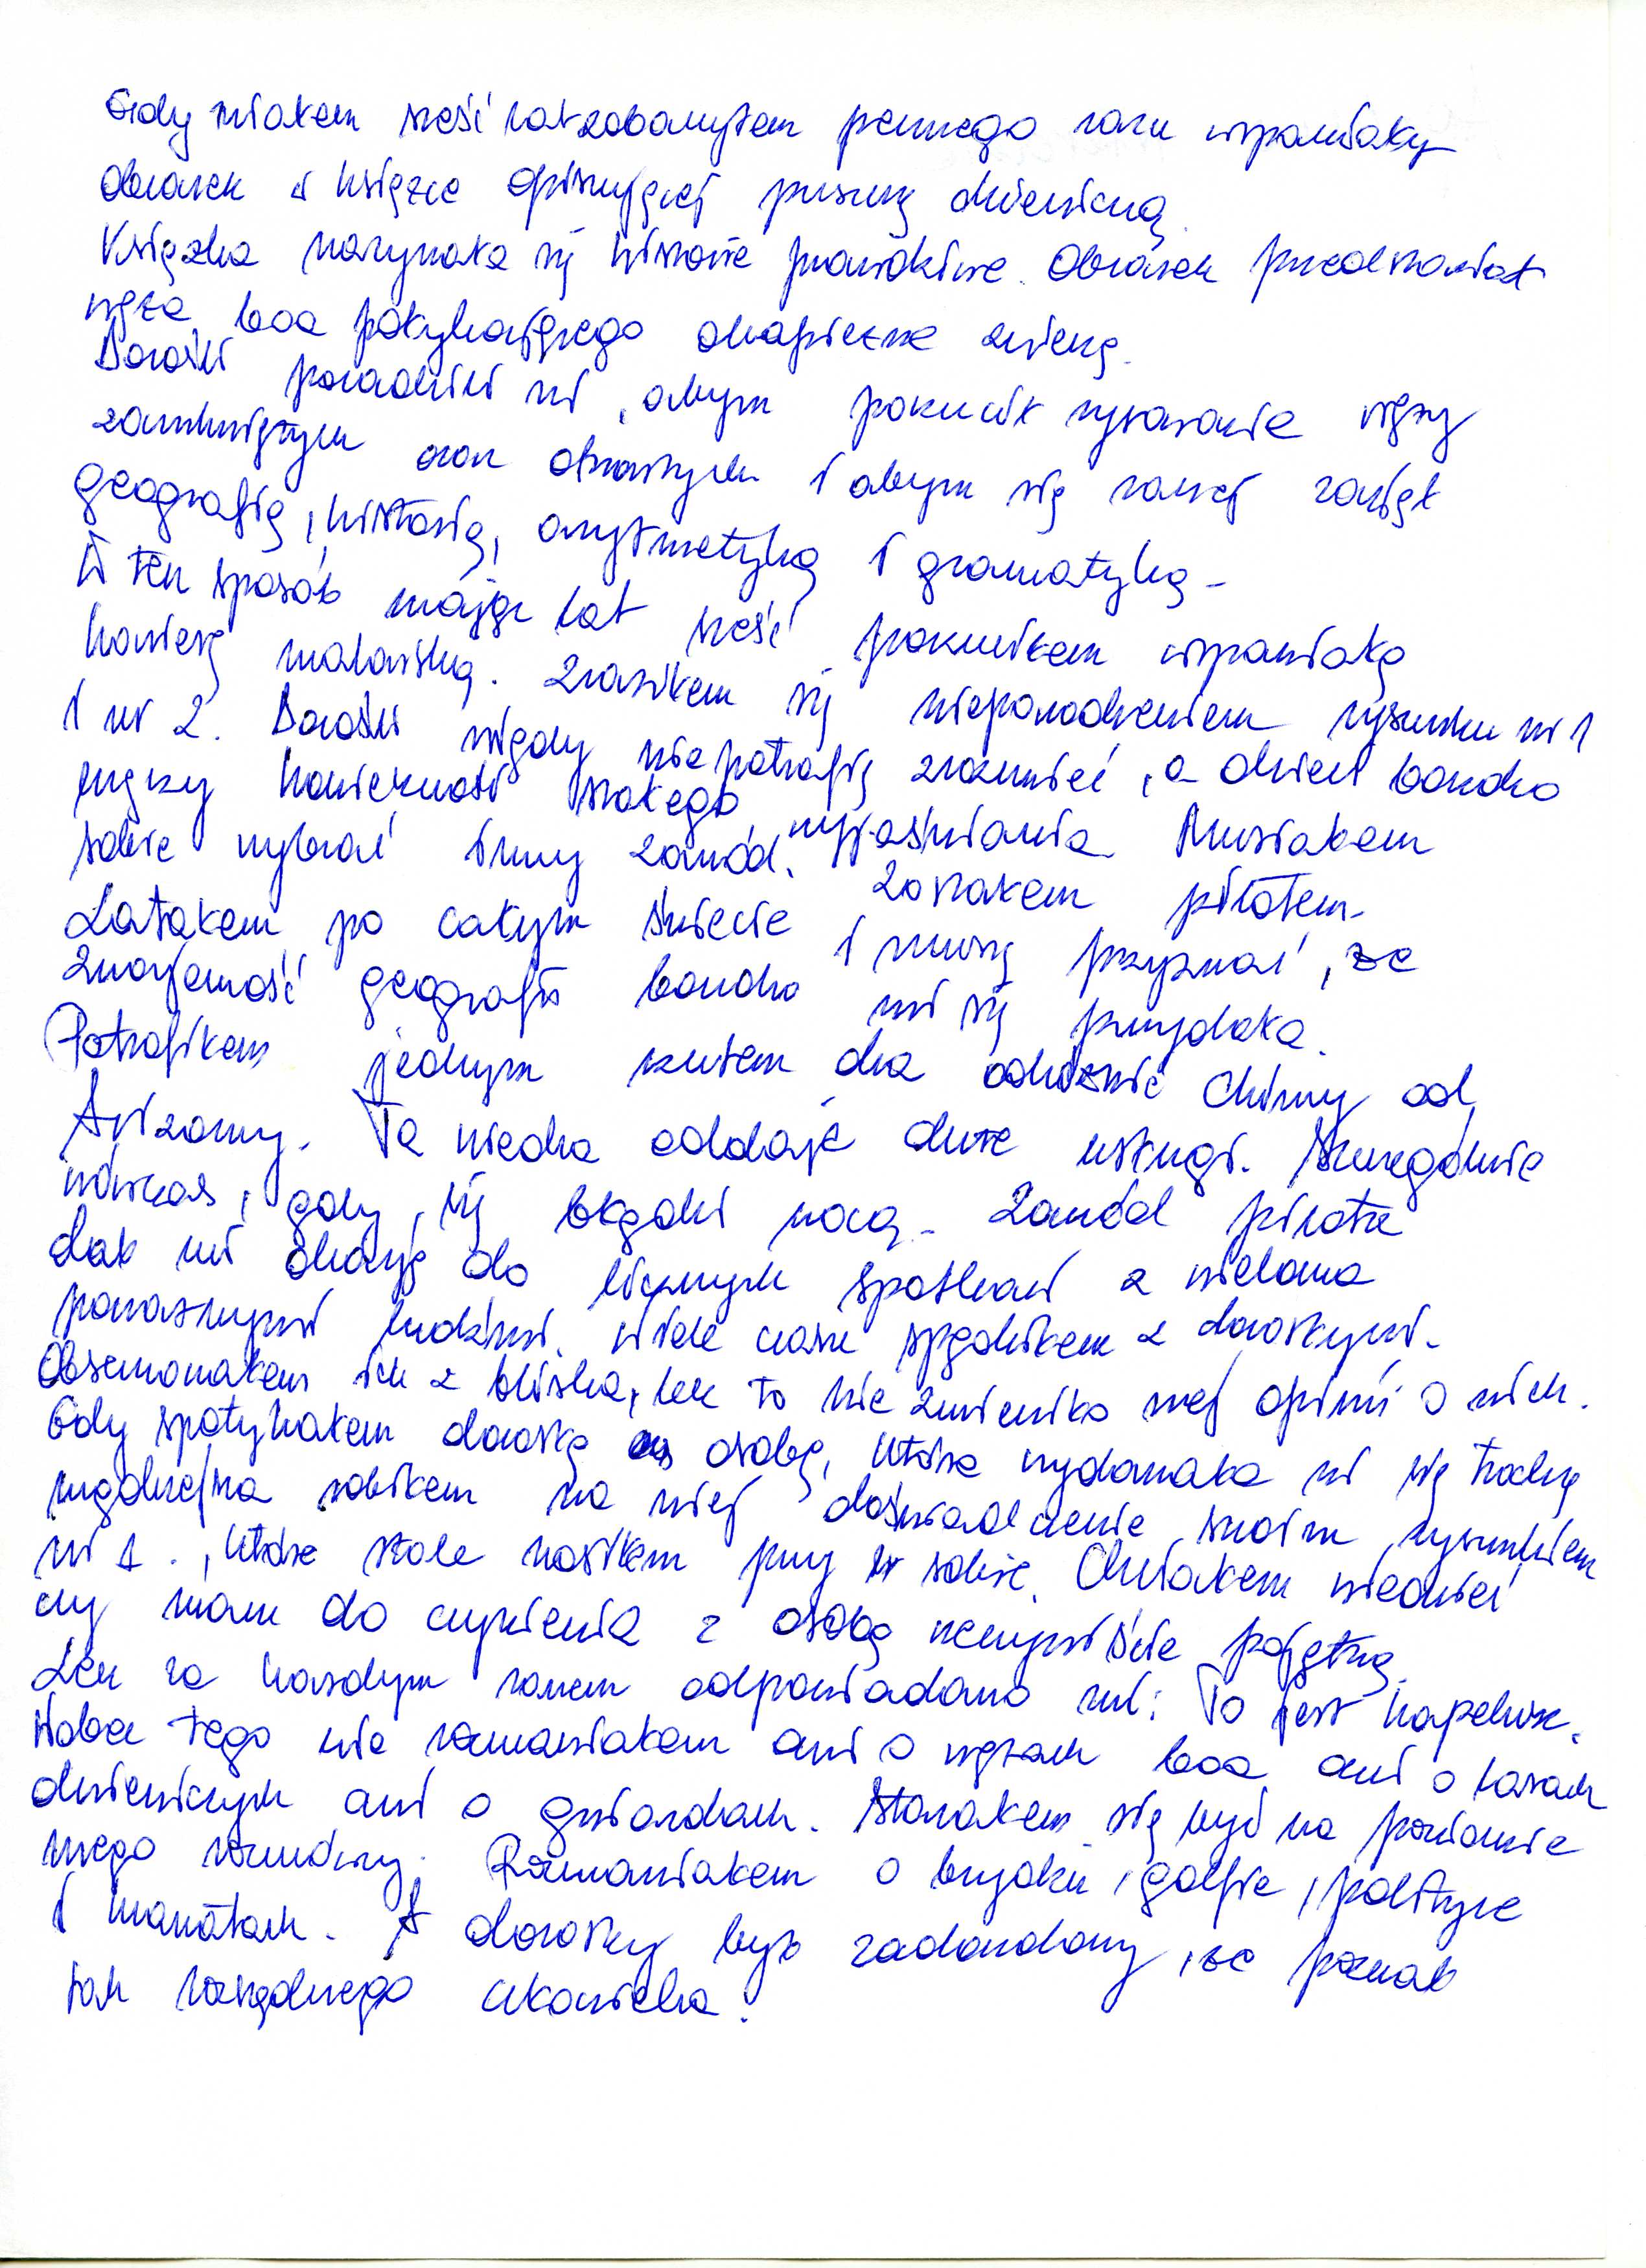 Gdy miałem sześć lat zobaczyłem pewnego razu wspaniały
obrazek w książce opisującej puszczę dziewiczą.
Książka nazywała się historie prawdziwe. Obrazek przedstawiał
węża boa połykającego drapieżne zwierzę.
Dorośli poradzili mi, abym porzucił rysowanie węży
zamkniętych oraz otwartych i abym się raczej zajął
geografią, historią, arytmetyką i gramatyką.
W ten sposób mając lat sześć porzuciłem wspaniałą
karierę malarską. Zraziłem się niepowodzeniem rysunku nr 1
i nr 2. Dorośli nigdy nie potrafią zrozumieć, a dzieci bardzo
męczy konieczność stałego wyjaśniania. Musiałem
sobie wybrać inny zawód. Zostałem pilotem.
Latałem po całym świecie i muszę przyznać, że
znajomość geografii bardzo mi się przydała.
Potrafiłem jednym rzutem oka odróżnić Chiny od
Arizony. Ta wiedza oddaje duże usługi. Szczególnie
wówczas, gdy się błądzi nocą. Zawód pilota
dał mi okazję do licznych spotkań z wieloma
poważnymi ludźmi. Wiele czasu spędziłem z dorosłymi.
Obserwowałem ich z bliska, lecz to nie zmieniło mej opinii o nich.
Gdy spotykałem dorosłą osobę, która wydawała mi się trochę
mądrzejsza robiłem na niej doświadczenie swoim rysunkiem
nr 1., które stale nosiłem przy sobie. Chciałem wiedzieć
czy mam do czynienia z osobą rzeczywiście pojętną.
Lecz za każdym razem odpowiadano mi: To jest kapelusz.
Wobec tego nie rozmawiałem ani o wężach boa ani o lasach
dziewiczych ani o gwiazdach. Starałem się być na poziomie
mego rozmówcy. Rozmawiałem o brydżu, golfie, polityce
i krawatach. A dorosły był zadowolony, że poznał
tak rozsądnego człowieka.